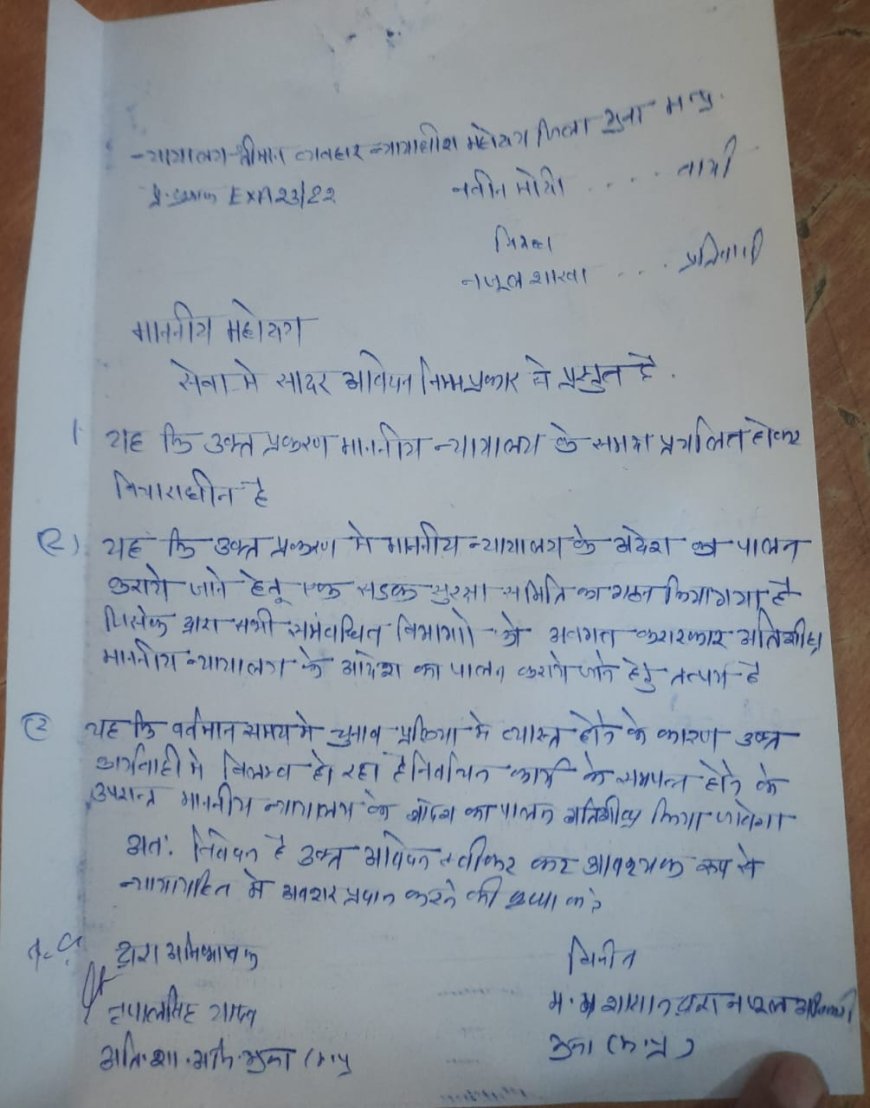 न्यायालय श्रीमान व्यवहार न्यायाधीश महोदय जिला गुना म.प्र.
प्र. क्रमांक EXA23/22 नवीन मोदी .... वादी
विरूद्ध
नजूल शाखा .... प्रतिवादी
माननीय महोदय
सेवा मे सादर आवेदन निम्नप्रकार से प्रस्तुत है.
1 यह कि उक्त प्रकरण माननीय न्यायालय के समक्ष प्रचलित होकर
विचाराधीन है
(2) यह कि उक्त प्रकरण मे माननीय न्यायालय के आदेश का पालन
कराये जाने हेतू एक सडक सुरक्षा समिति का गठन किया गया है
जिसके द्वारा सभी समंबन्धित विभागो को अवगत अतिशीघ्र
माननीय न्यायालय के आदेश का पालन कराये जाने हेतु तत्पर है
(2 यह कि वर्तमान समय मे चुनाव प्रक्रिया मे व्यास्त होने के कारण उक्त
कार्यवाही मे विलम्व हो रहा है निर्वाचन कार्य के सम्पन्न होने के
उपरान्त माननीय न्यायालय के आदेश का पालन अतिशीघ्र किया जावेगा
अतः निवेदन है उक्त आवेदन स्वीकार कर आवश्यक रूप से
न्यायहित मे अवशर प्रदान करने की कृप्या करे
द्वारा अभिभाषक विनीत
म.प्र शासन द्वारा नजूल अधिकारी
अति.शा.अभि.गुना (म.प्र गुना (म.प्र)